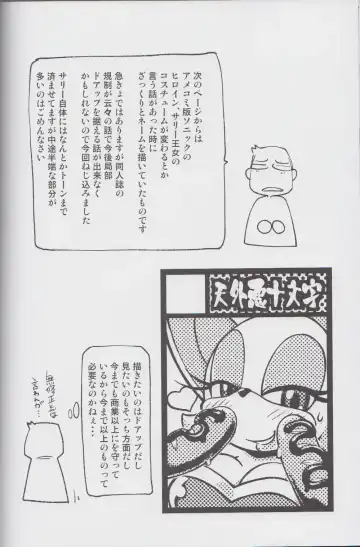 次のページからは
アメコミ版ソニックの
ヒロイン、サリー王女の
コスチュームが変わるとか
言う話があった時に
ざっくりとネームを描いていたものです
急きょではありますが同人誌の
規制が云々の話で今後局部
ドアップを据える話が出来なく
かもしれないので
今回ねじ込みました
サリー自体にはなんとかトーンまで
済ませてますが中途半端な部分が
多いのはごめんなさい
天外悪十大字
描きたいのはドアップだし
見たいのもそっち方面だし
今までも商業以上にを守って
いるから今まで以上のものって
必要なのかねぇ…
無修正とは
言わんが…